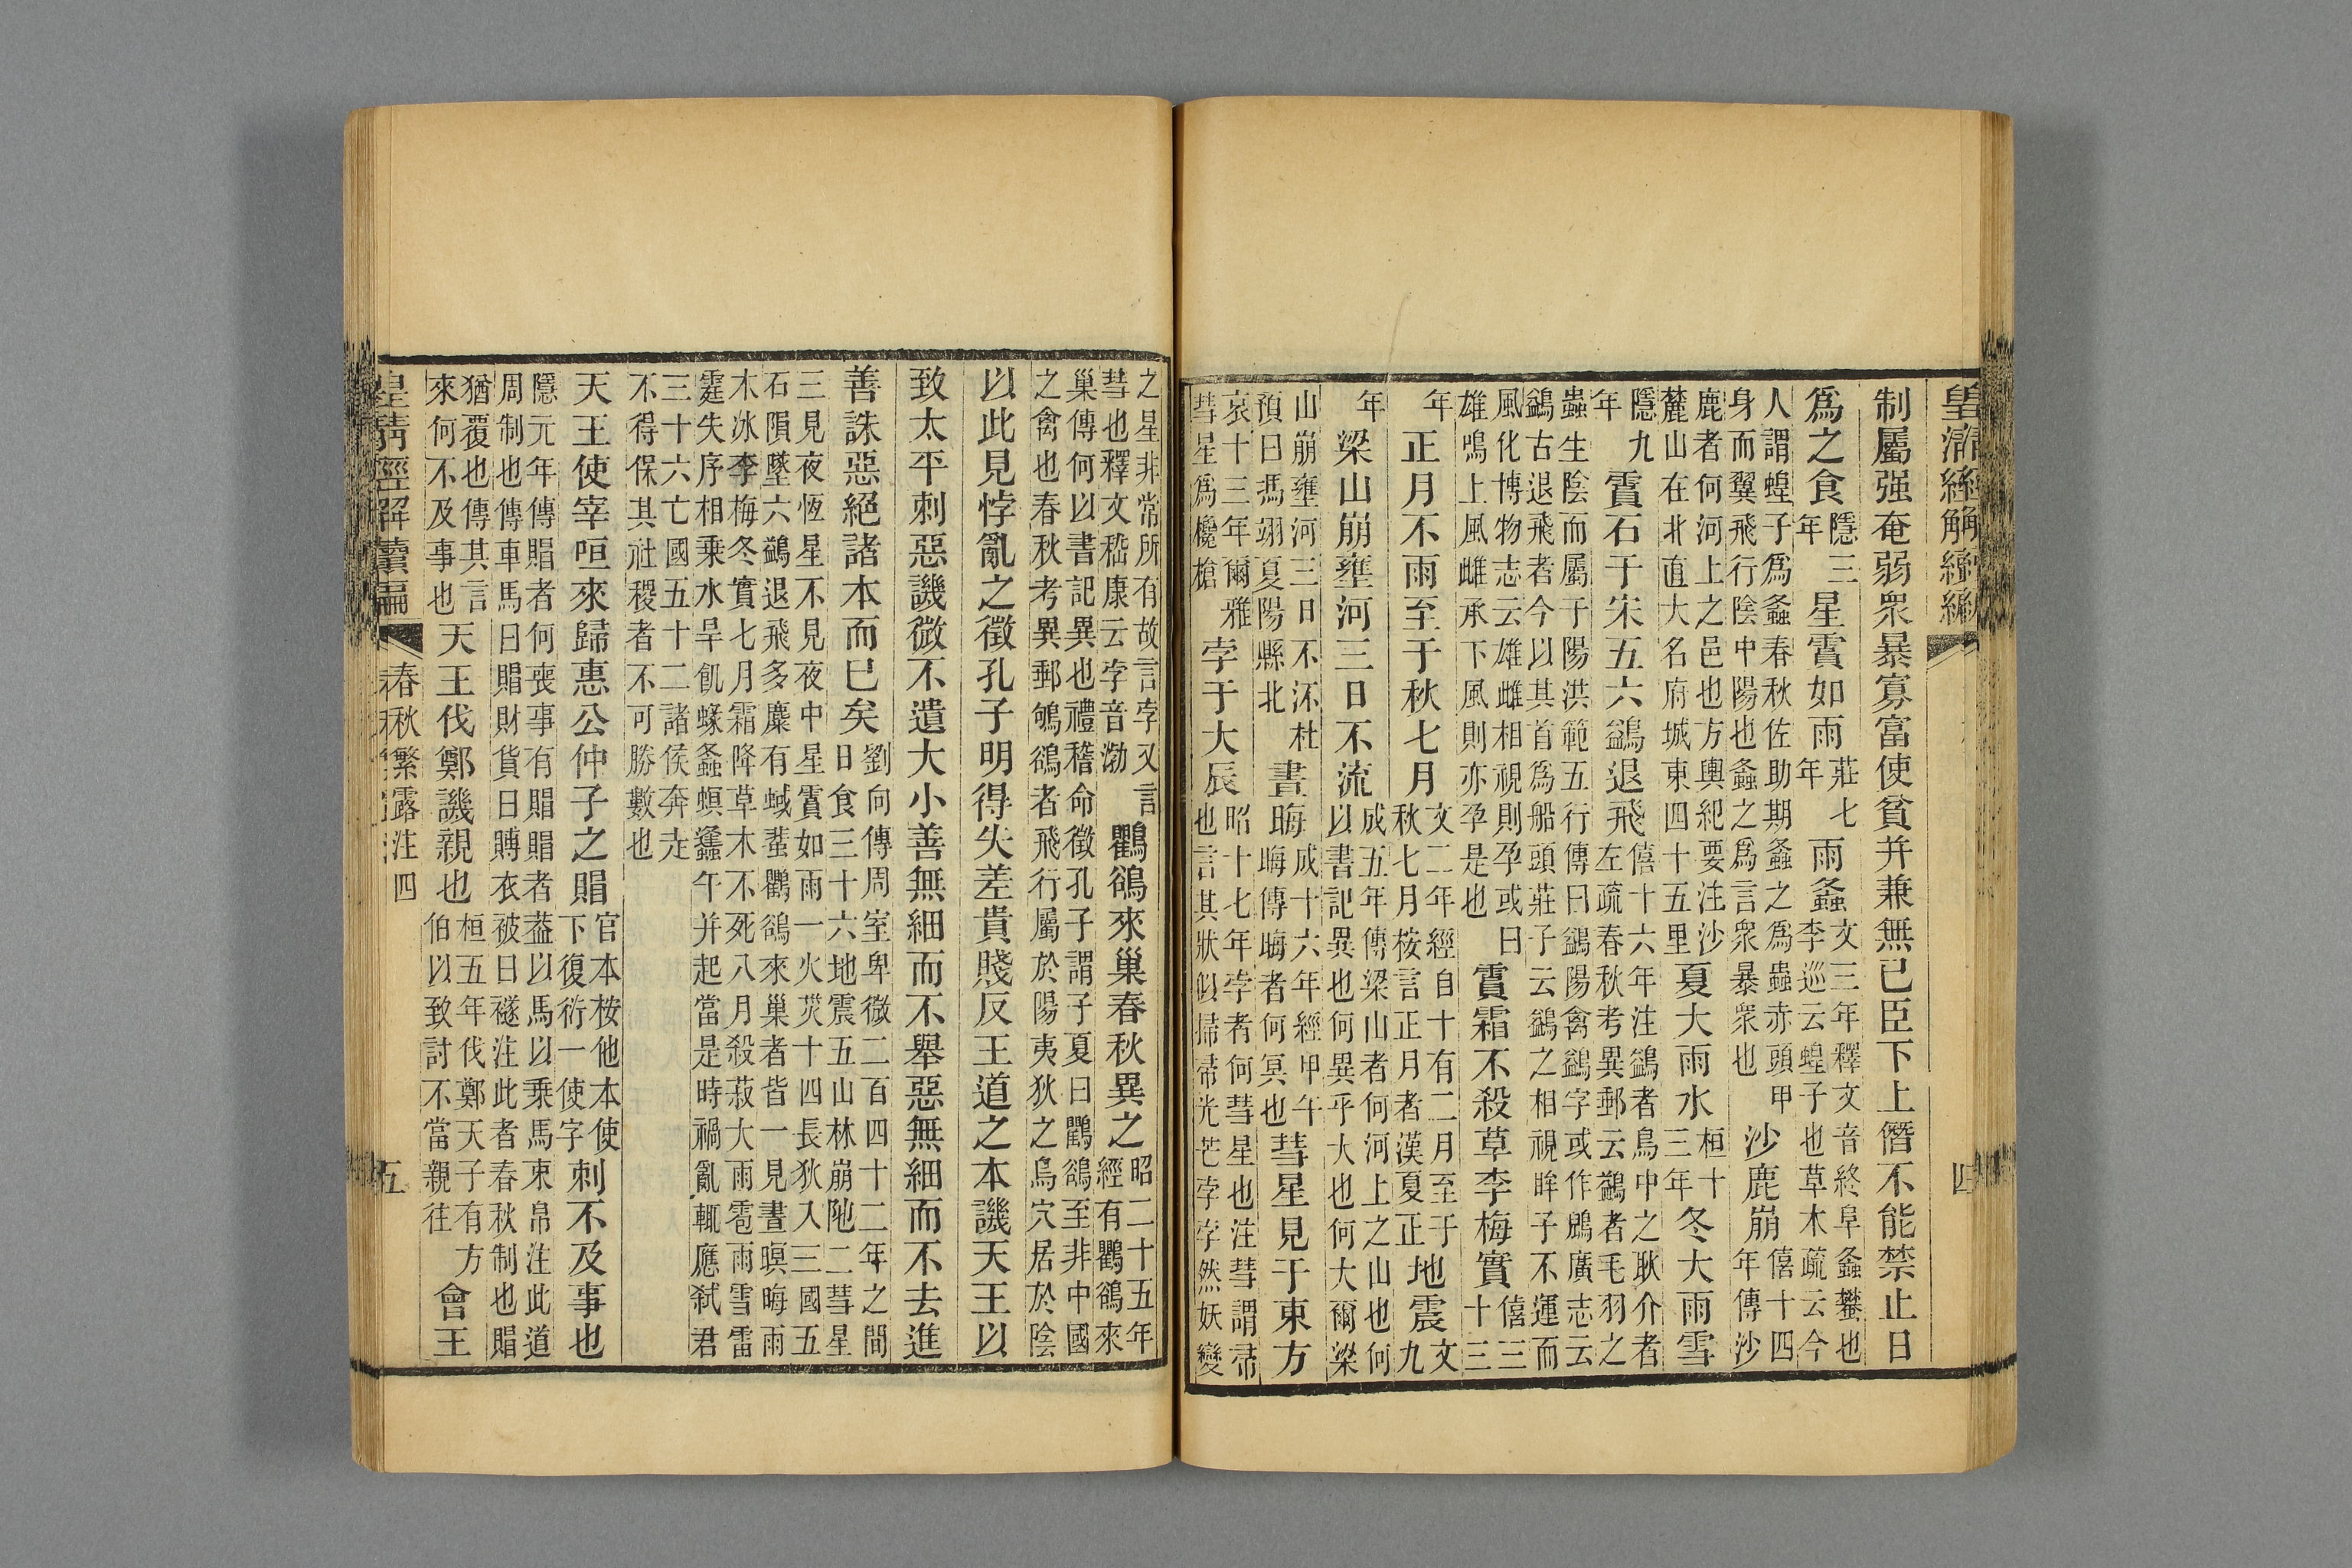 皇清經解續編 四
制屬强奄弱眾暴寡富使貧并兼無已臣下上僭不能禁止日
爲之食隱三年星霣如雨莊七年雨螽文三年釋文音終阜螽蠜也李巡云蝗子也草木疏云今
人謂蝗子爲螽春秋佐助期螽之爲蟲赤頭甲身而翼飛行陰中陽也螽之爲言眾暴眾也沙鹿崩僖十四年傳沙
鹿者何河上之邑也方輿紀要注沙麓山在北直大名府城東四十五里夏大雨水桓十三年冬大雨雪
隱九年霣石于宋五六鷁退飛僖十六年注鷁者鳥中之耿介者左疏春秋考異郵云鷁者毛羽之
蟲生陰而屬于陽洪範五行傳曰鷁陽禽鷁字或作鶂廣志云鷁古退飛者今以其首爲船頭莊子云鷁之相視眸子不運而
風化博物志云雄雌相視則孕或曰雄鳴上風雌承下風則亦孕是也霣霜不殺草李梅實僖三十三
年正月不雨至于秋七月文二年經自十有二月至于秋七月桉言正月者漢夏正地震文九
年梁山崩壅河三日不流成五年傳梁山者何河上之山也何以書記異也何異乎大也何大爾梁
山崩壅河三日不㳅杜預曰馮翊夏陽縣北晝晦成十六年經甲午晦傳晦者何冥也彗星見于東方
哀十三年爾雅彗星爲欃槍孛于大辰昭十七年孛者何彗星也注彗謂帚也言其狀似掃帚光芒孛孛然妖變
之星非常所有故言孛又言彗也釋文嵇康云孛音渤鸜鵒來巢春秋異之昭二十五年經有鸜鵒來
巢傳何以書記異也禮稽命徵孔子謂子夏曰鸜鵒至非中國之禽也春秋考異郵鴝鵒者飛行屬於陽夷狄之鳥穴居於陰
以此見悖亂之徵孔子明得失差貴賤反王道之本譏天王以
致太平刺惡譏微不遺大小善無細而不舉惡無細而不去進
善誅惡絕諸本而已矣劉向傳周室卑微二百四十二年之間日食三十六地震五山林崩阤二彗星
三見夜恆星不見夜中星霣如雨一火災十四長狄入三國五石隕墜六鷁退飛多麋有蜮蜚鸜鵒來巢者皆一見晝暝晦雨
木冰李梅冬實七月霜降草木不死八月殺菽大雨雹雨雪雷霆失序相乘水旱飢蝝螽螟螽午并起當是時禍亂輒應弒君
三十六亡國五十二諸侯奔走不得保其社稷者不可勝數也
天王使宰咺來歸惠公仲子之賵官本桉他本使下復衍一使字刺不及事也
隱元年傳賵者何喪事有賵賵者蓋以馬以乘馬束帛注此道周制也傳車馬曰賵財貨曰賻衣被曰襚注此者春秋制也賵
猶覆也傳其言來何不及事也天王伐鄭譏親也桓五年伐鄭天子有方伯以致討不當親往會王
皇清經解續編 春秋繁露注四 五